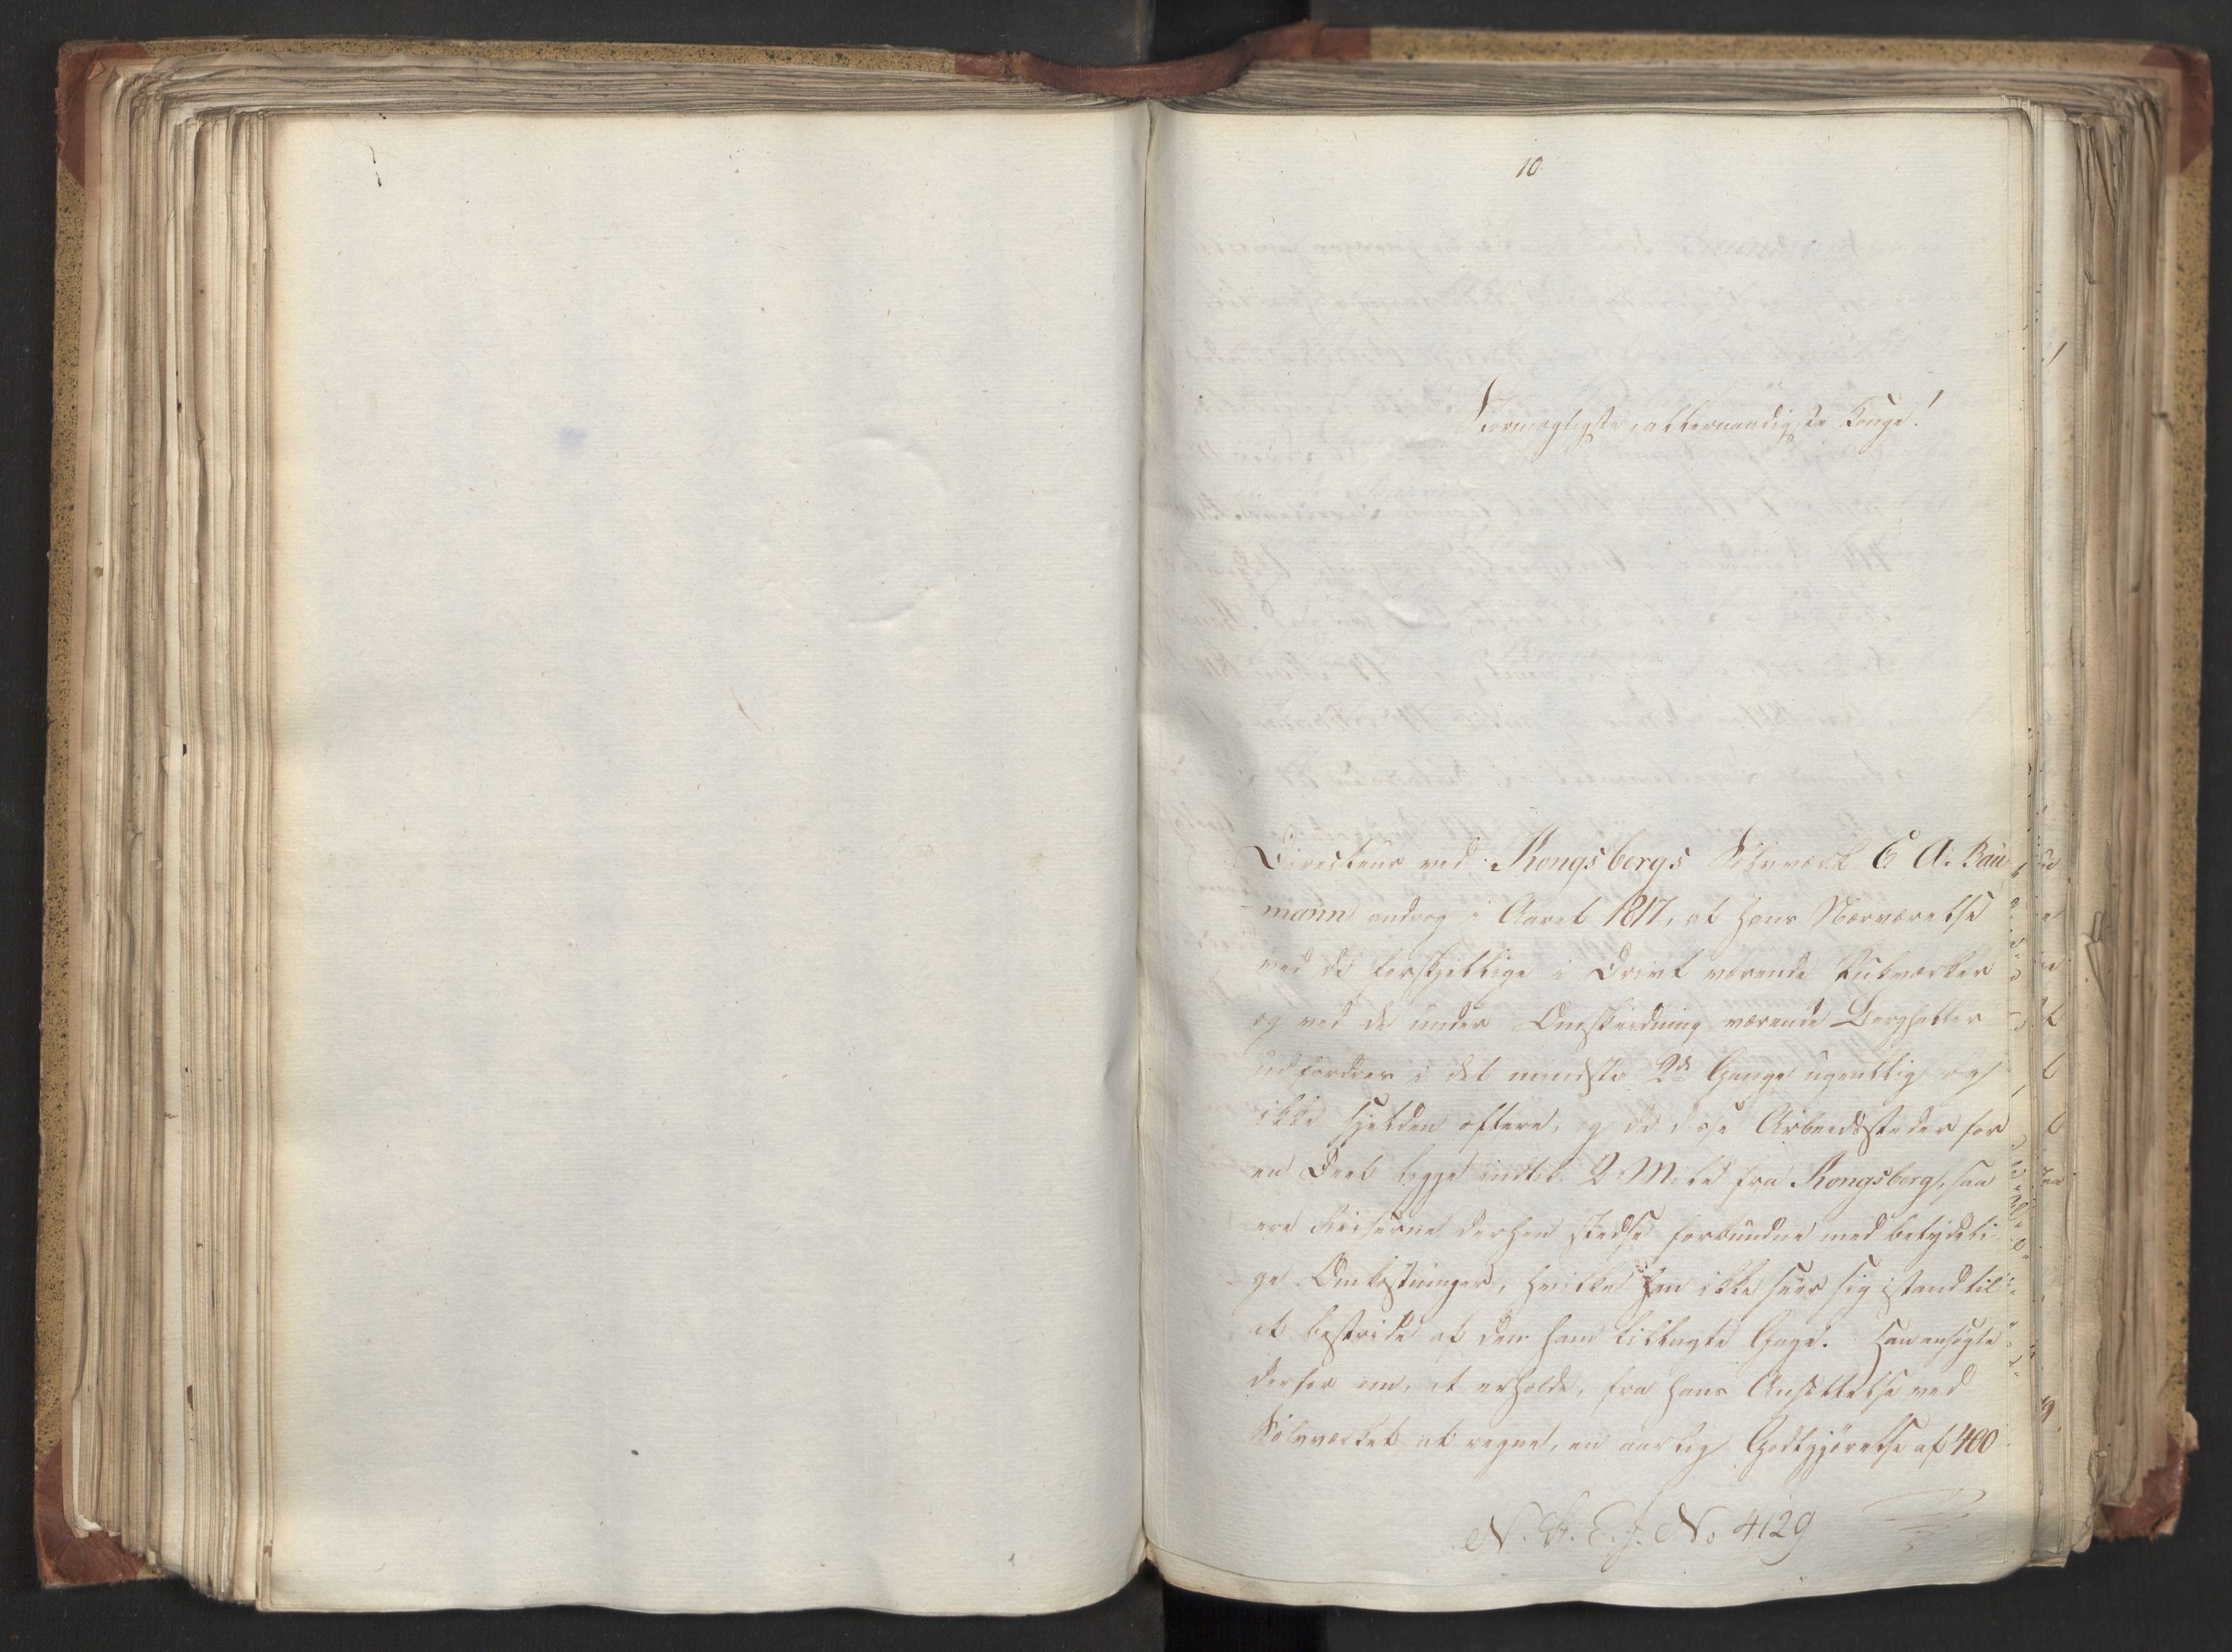 10.
Stormægtigste, allernaadigste Konge!
Directeur ved Kongsbergs Sølvværk C. A. Bau
mann androg i Aaret 1817, at hans Nærværelse
ved de forskjellige i Drivt værende Pukværker
og ved de under Omskeidning værende Berghaller
udfordres i det mindste 2de Gange ugentlig og
ikke sjelden oftere, og da disse Arbeidssteder for
en Deel ligge indtil 2 Miile fra Kongsberg, saa
ere Reiserne derhen stedse forbundne med betydeli-
ge Omkostninger, hvilke han ikke seer sig istand til
at bestride af den ham tillagte Gage. Han ansøgte
derfor om, at erholde, fra hans Ansættelse ved
Sølvværket at regne, en aarlig Godtgjørelse af 400
N. St. E. J. No 4129